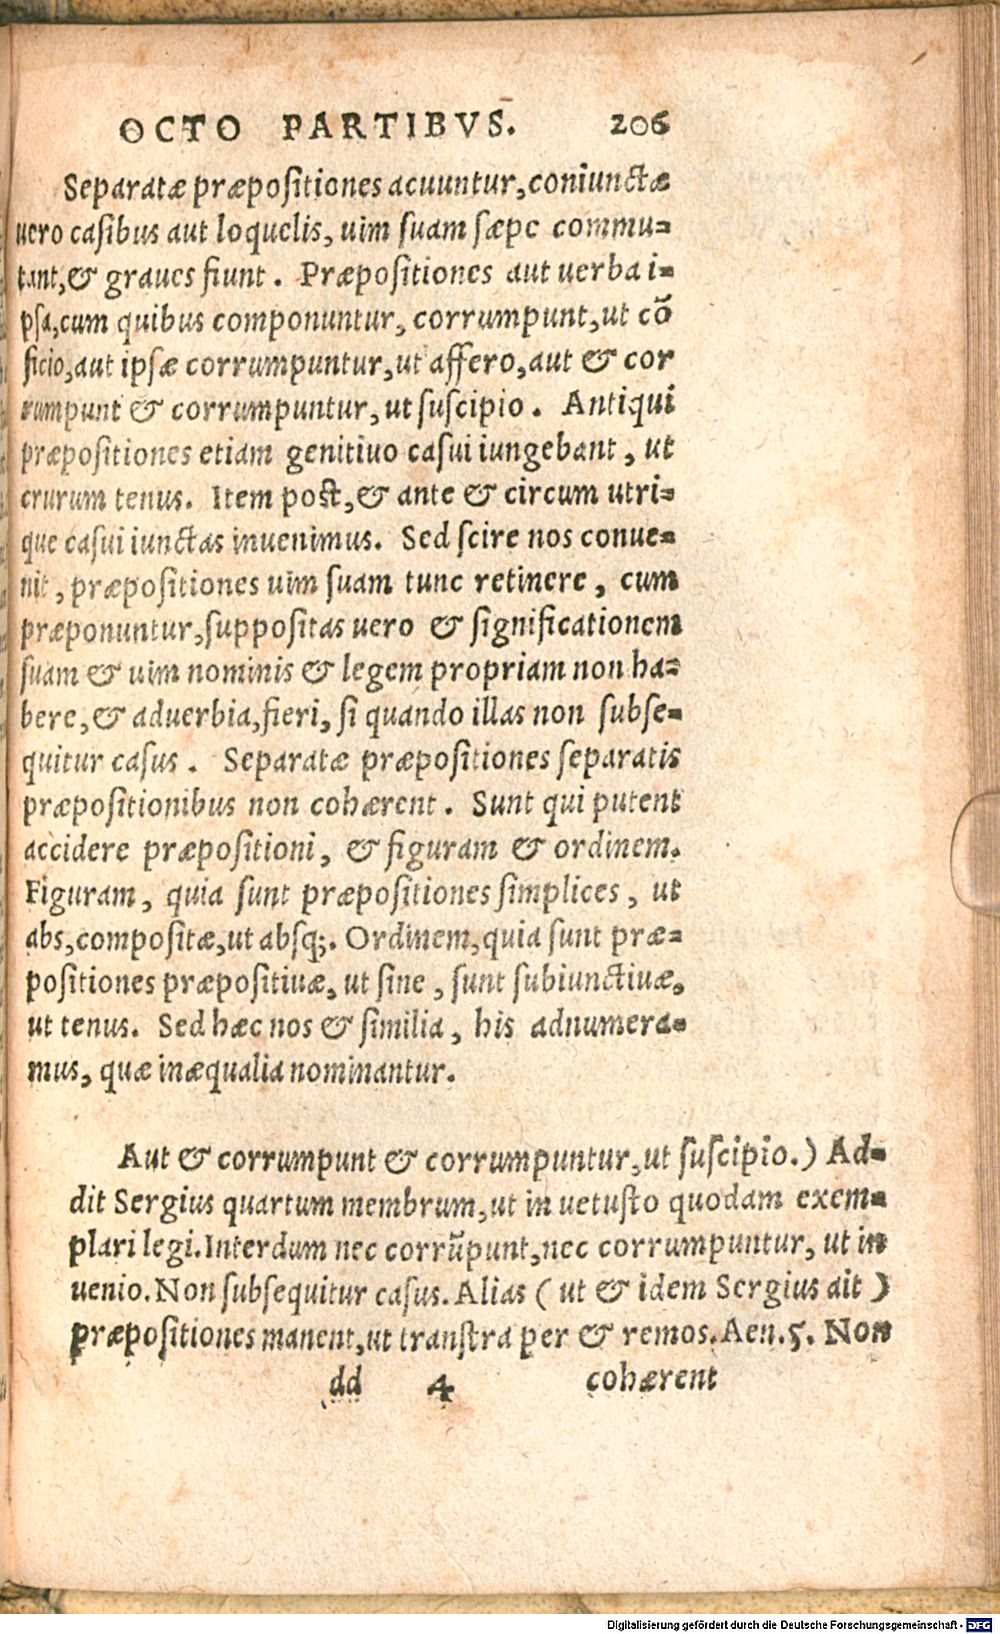 OCTO PARTIBVS. 206
Separatæ præpositiones acuuntur, coniunctæ
uero casibus aut loquelis, uim suam sæpe commu-
tant, & graues fiunt. Præpositiones aut uerba i-
psa, cum quibus componuntur, corrumpunt, ut cõ
ficio, aut ipsæ corrumpuntur, ut affero, aut & cor
rumpunt & corrumpuntur, ut suscipio. Antiqui
præpositiones etiam genitiuo casui iungebant, ut
crurum tenus. Item post, & ante & circum utri-
que casui iunctas inuenimus. Sed scire nos conue-
nit, præpositiones uim suam tunc retinere, cum
præponuntur, suppositas uero & significationem
suam & uim nominis & legem propriam non ha-
bere, & aduerbia, fieri, si quando illas non subse-
quitur casus. Separatæ præpositiones separatis
præpositionibus non cohærent. Sunt qui putent
accidere præpositioni, & figuram & ordinem.
Figuram, quia sunt præpositiones simplices, ut
abs, compositæ, ut absq;. Ordinem, quia sunt præ-
positiones præpositiuæ, ut sine, sunt subiunctiuæ,
ut tenus. Sed hæc nos & similia, his adnumera-
mus, quæ inæqualia nominantur.
Aut & corrumpunt & corrumpuntur, ut suscipio.) Ad-
dit Sergius quartum membrum, ut in uetusto quodam exem-
plari legi. Interdum nec corrũpunt, nec corrumpuntur, ut in
uenio. Non subsequitur casus. Alias ( ut & idem Sergius ait )
præpositiones manent, ut transtra per & remos. Aen. 5. Non
dd 4 cohærent
Digitalisierung gefördert durch die Deutsche Forschungsgemeinschaft - DFG